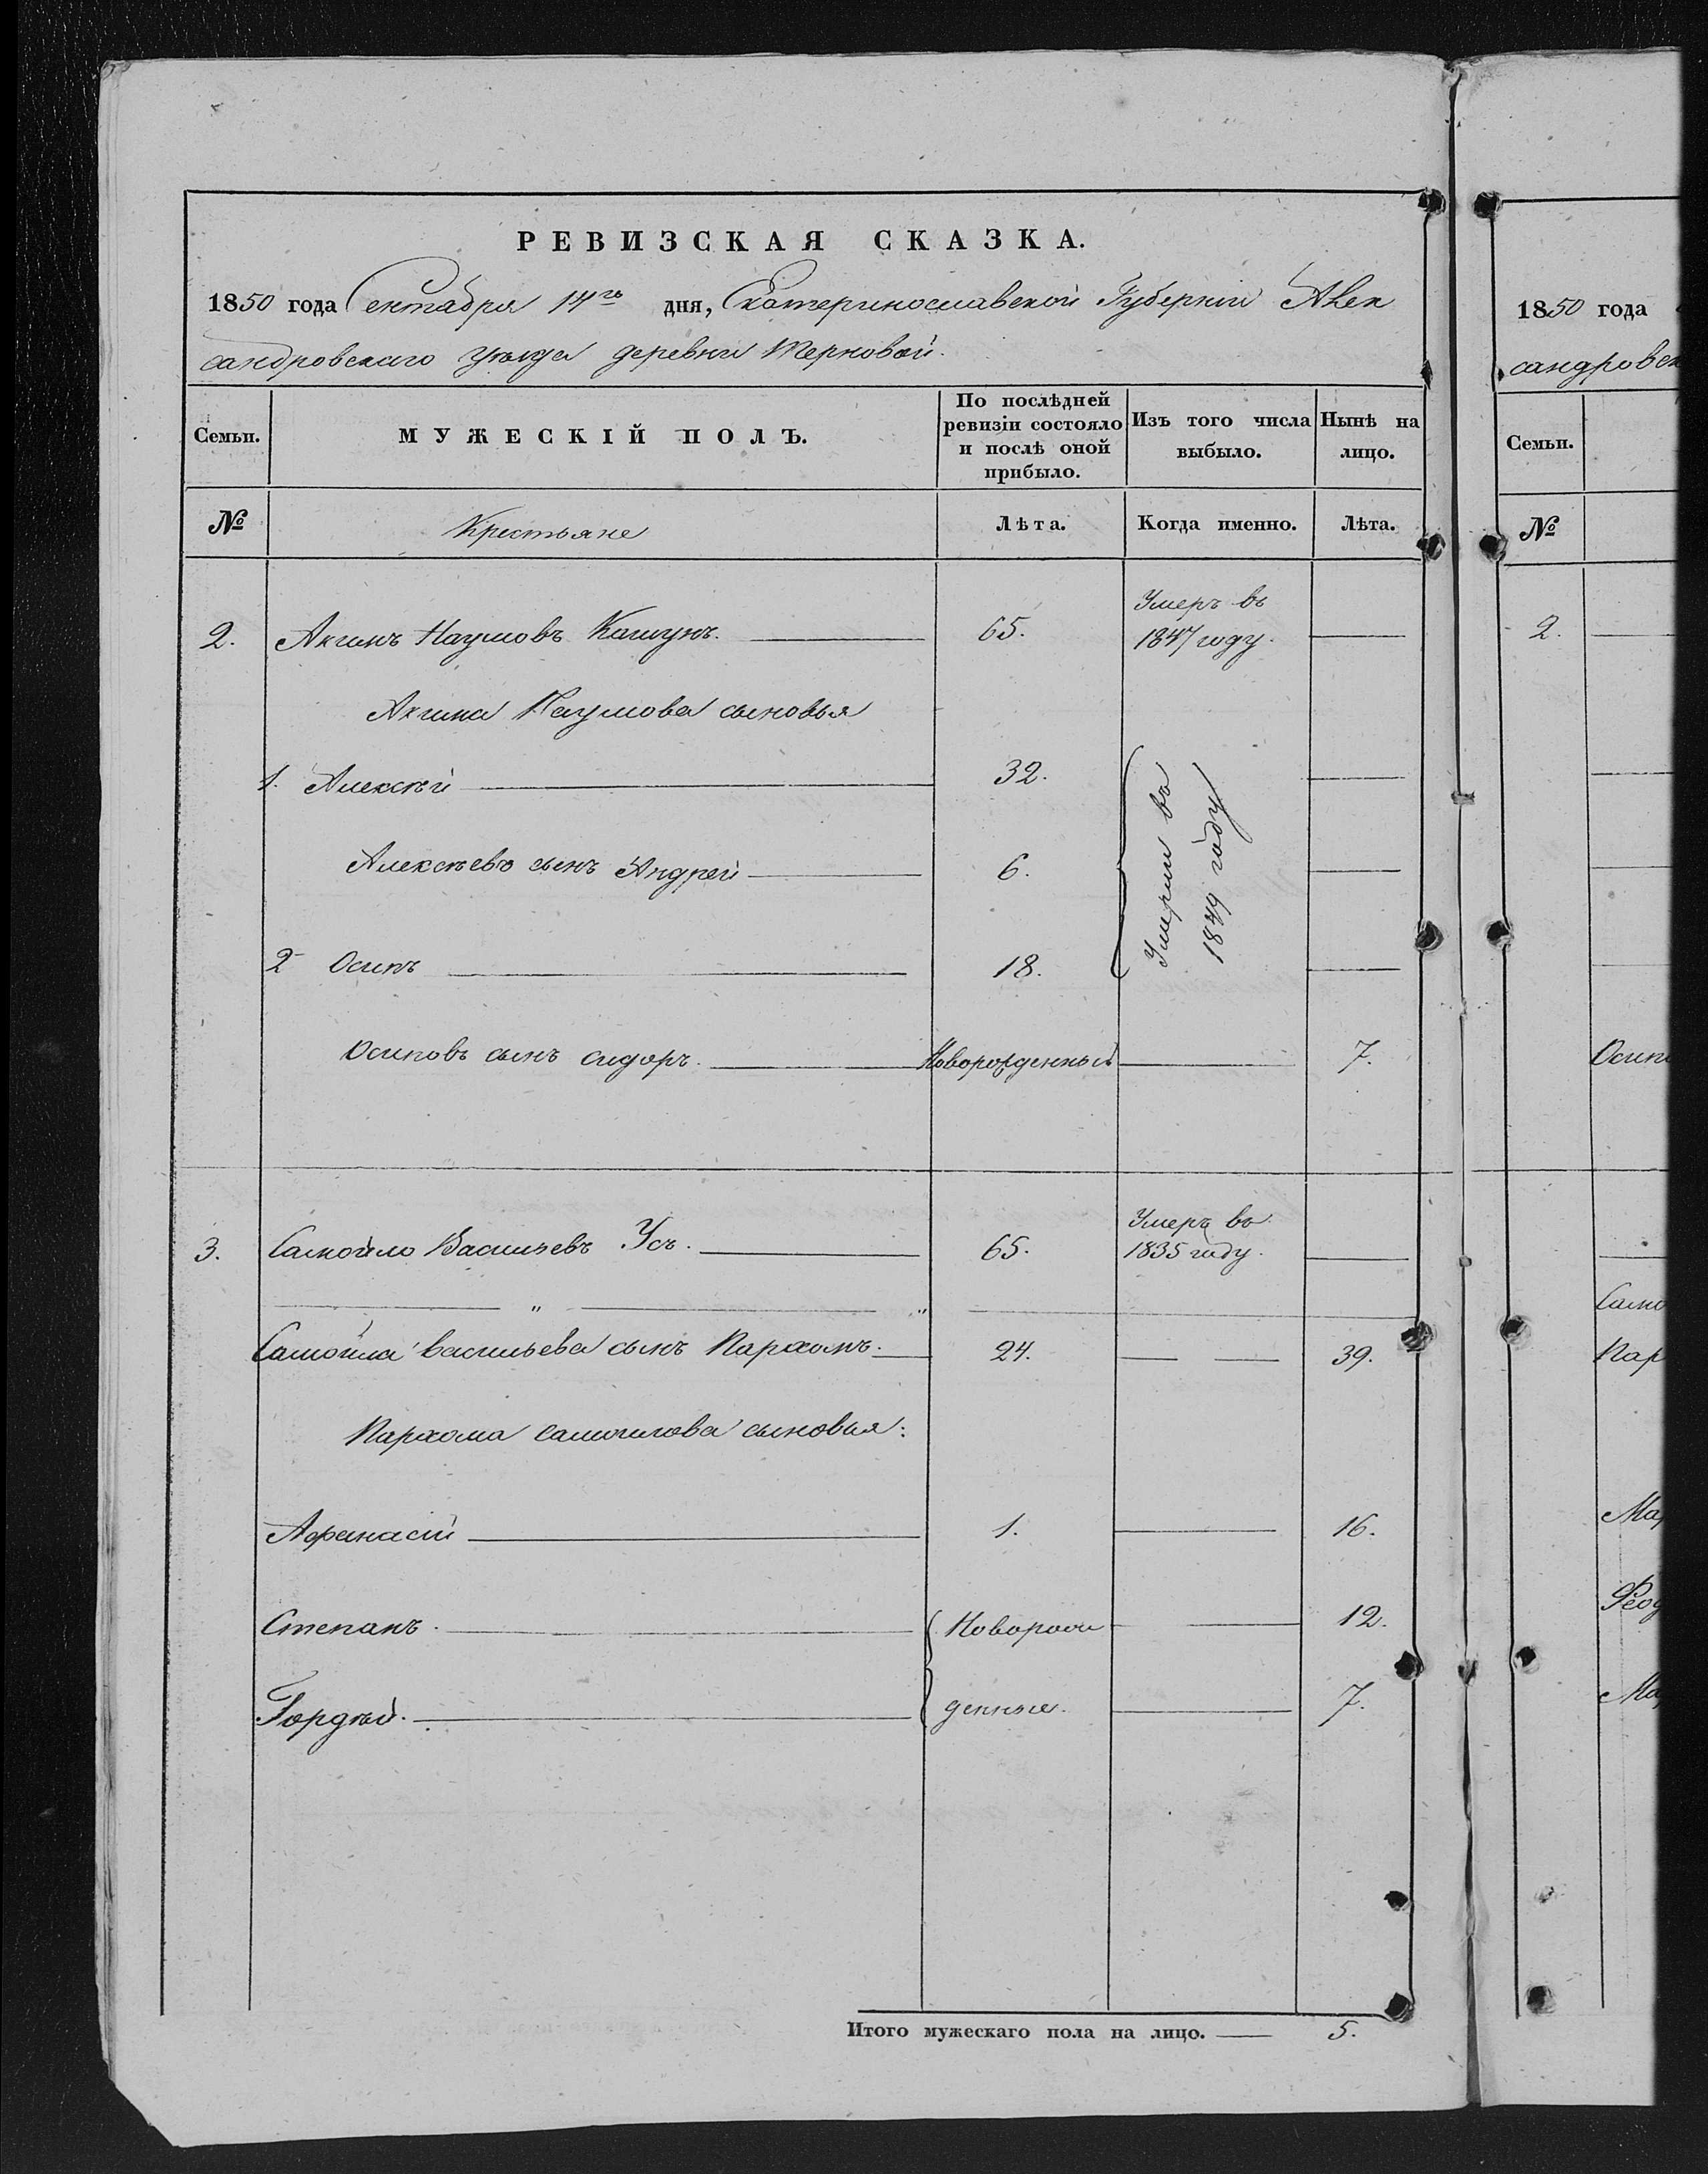 РЕВИЗСКАЯ СКАЗКА.
1850 года Сентября 14го дня, Екатеринославской Губерніи Алек
сандровскаго уѣзда деревни Терновой.
Семьи. МУЖЕСКІЙ ПОЛЪ. По послѣдней ревизіи состояло и послѣ оной прибыло. Изъ того числа выбыло. Нынѣ на лицо.
№ Крестьяне Лѣта. Когда именно. Лѣта.
2. Акимъ Наумовъ 65. Умеръ въ 1847 году.
Акима Наумова сыновья
1. Алексѣй 32.
Алексѣевъ сынъ Андрей 6.
2 Осипъ 18.
Умерли въ 1849 году
Осиповъ сынъ сидоръ. Новорожденный 7.
3. Самойло Васильевъ Усъ. 65. Умеръ въ 1835 году.
" "
Самойла васильева сынъ Пархомъ. 24. 39.
Пархома самойлова сыновья:
Афанасій 1. 16.
Степанъ. Новорож 12.
Гордѣй. денные. 7.
Итого мужескаго пола на лицо. 5.
1850 года
сандровск
Семьи.
№
2.
Осип
Само
Пар
Мар
Ма